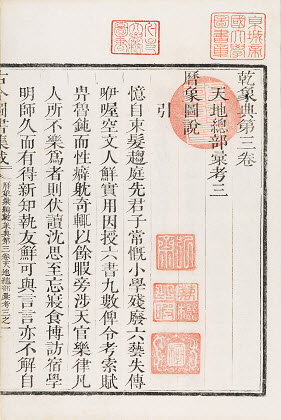 京城帝
國大學
圖書章
乾象典第三卷
天地總部彙考三
曆象圖說
引
憶自束髮趨庭先君子常慨小學殘廢六藝失傳
咿喔空文人鮮實用因授六書九數俾令考索賦
畀魯鈍而性癖躭奇輒以餘暇旁涉天官樂律凡
人所不樂爲者則伏讀沈思至忘寢食博訪宿學
明師久而有得新知執友鮮可與言言亦不解自
古今圖書集成
曆象彙編乾象典第三卷天地總部彙考三之一